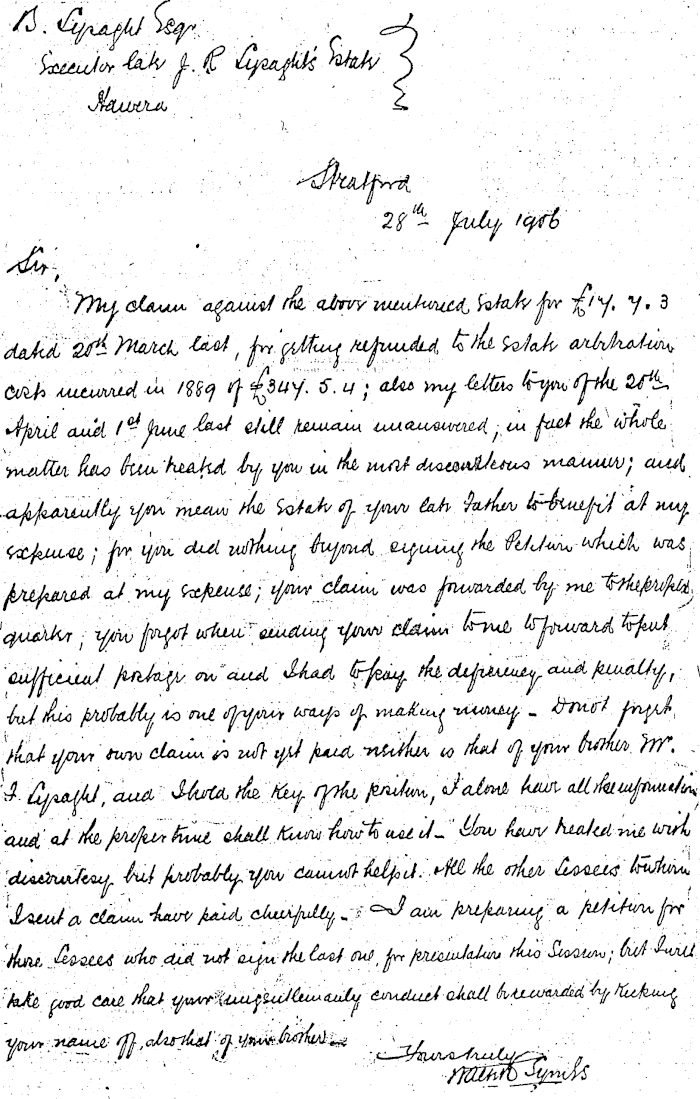 B. Lysaght Esqr
Executor late J. R Lysaght's Estate
Hawera
Stratford
28th July 1906
Sir,
My claim against the above mentioned Estate for £17. 7. 3
dated 20th March last, for getting refunded to the Estate arbitration
costs incurred in 1889 of £347. 5. 4; also my letters to you of the 20th
April and 1st June last still remain unanswered; in fact the whole
matter has been treated by you in the most discourteous manner; and
apparently you mean the Estate of your late Father to benefit at my
expense; for you did nothing beyond signing the Petition which was
prepared at my expense; your claim was forwarded by me to the proper
quarter; you forgot when sending your claim to me to forward to put
sufficient postage on and I had to pay the deficiency and penalty,
but this probably is one of your ways of making money - Do not forget
that your own claim is not yet paid neither is that of your brother Mr.
F Lysaght, and I hold the key of the position, I alone have all the information
and at the proper time shall know how to use it - You have treated me with
discourtesy but probably you cannot help it. All the other Lessees to whom
I sent a claim have paid cheerfully - I am preparing a petition for
those Lessees who did not sign the last one, for presentation this Session; but I will
take good care that your ungentlemanly conduct shall be rewarded by kicking
your name off, also that of your brother -
Yours truly
Symes